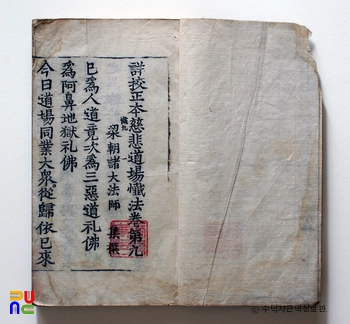 詳校正本慈悲道場懺法卷第九
梁朝諸大法師集撰
已爲人道竟次爲三惡道礼佛
爲阿鼻地獄礼佛
今日道場同業大衆從歸依已來
ⓒ 수덕사근역성보관